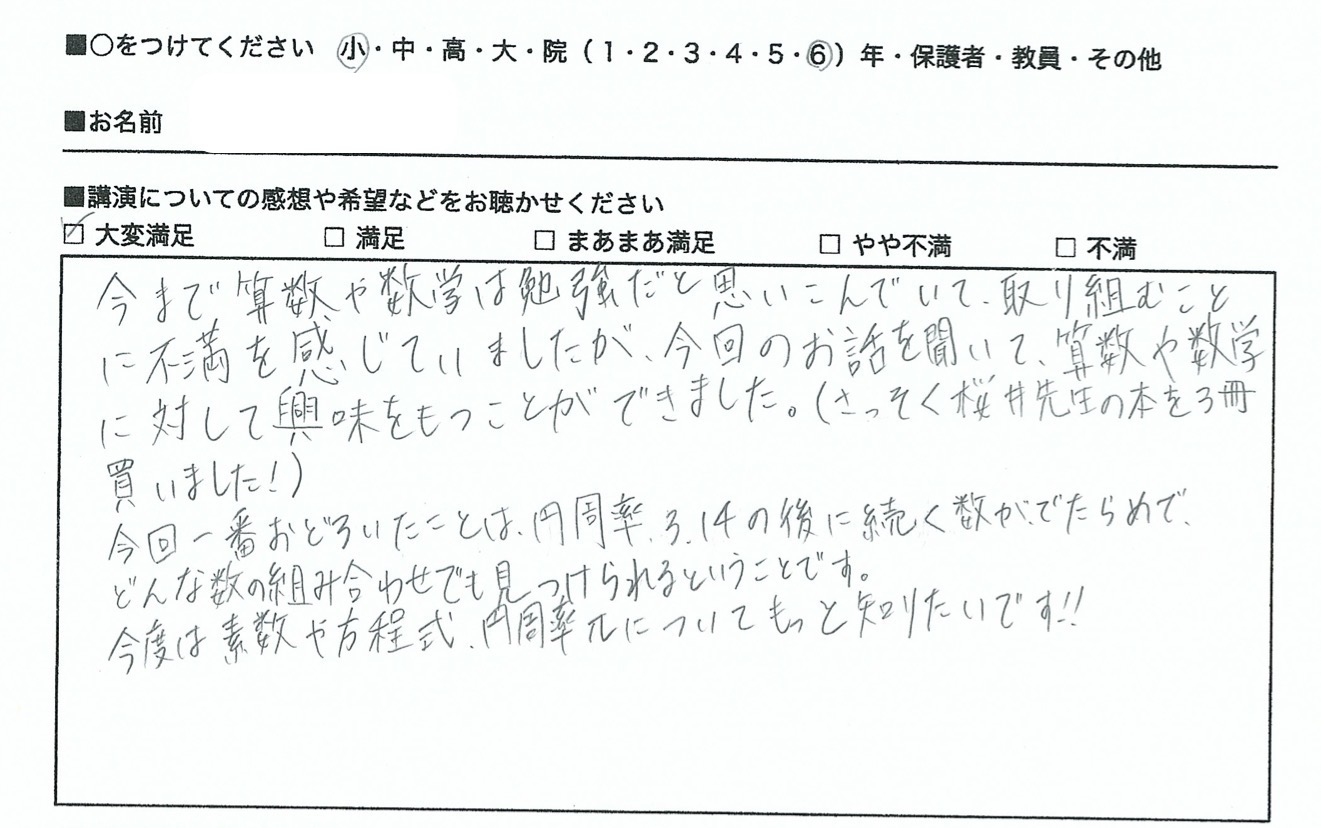 ■○をつけてください 小・中・高・大・院（1・2・3・4・5・6）年・保護者・教員・その他
■お名前
■講演についての感想や希望などをお聴かせください
☑ 大変満足 □ 満足 □ まあまあ満足 □ やや不満 □ 不満
今まで算数や数学は勉強だと思いこんでいて、取り組むこと
に不満を感じていましたが、今回のお話を聞いて、算数や数学
に対して興味をもつことができました。(さっそく桜井先生の本を3冊
買いました！)
今回一番おどろいたことは、円周率、3.14の後に続く数がでたらめで、
どんな数の組み合わせでも見つけられるということです。
今度は素数や方程式、円周率πについてもっと知りたいです!!